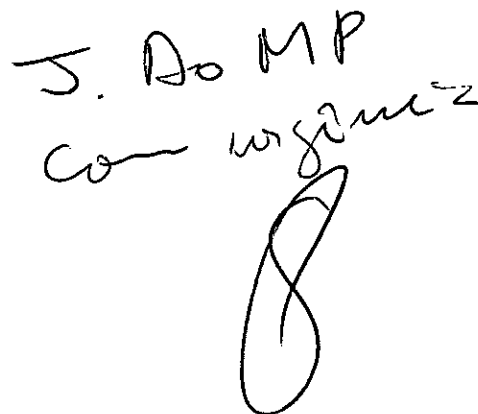 J. Ao MP
com urgência